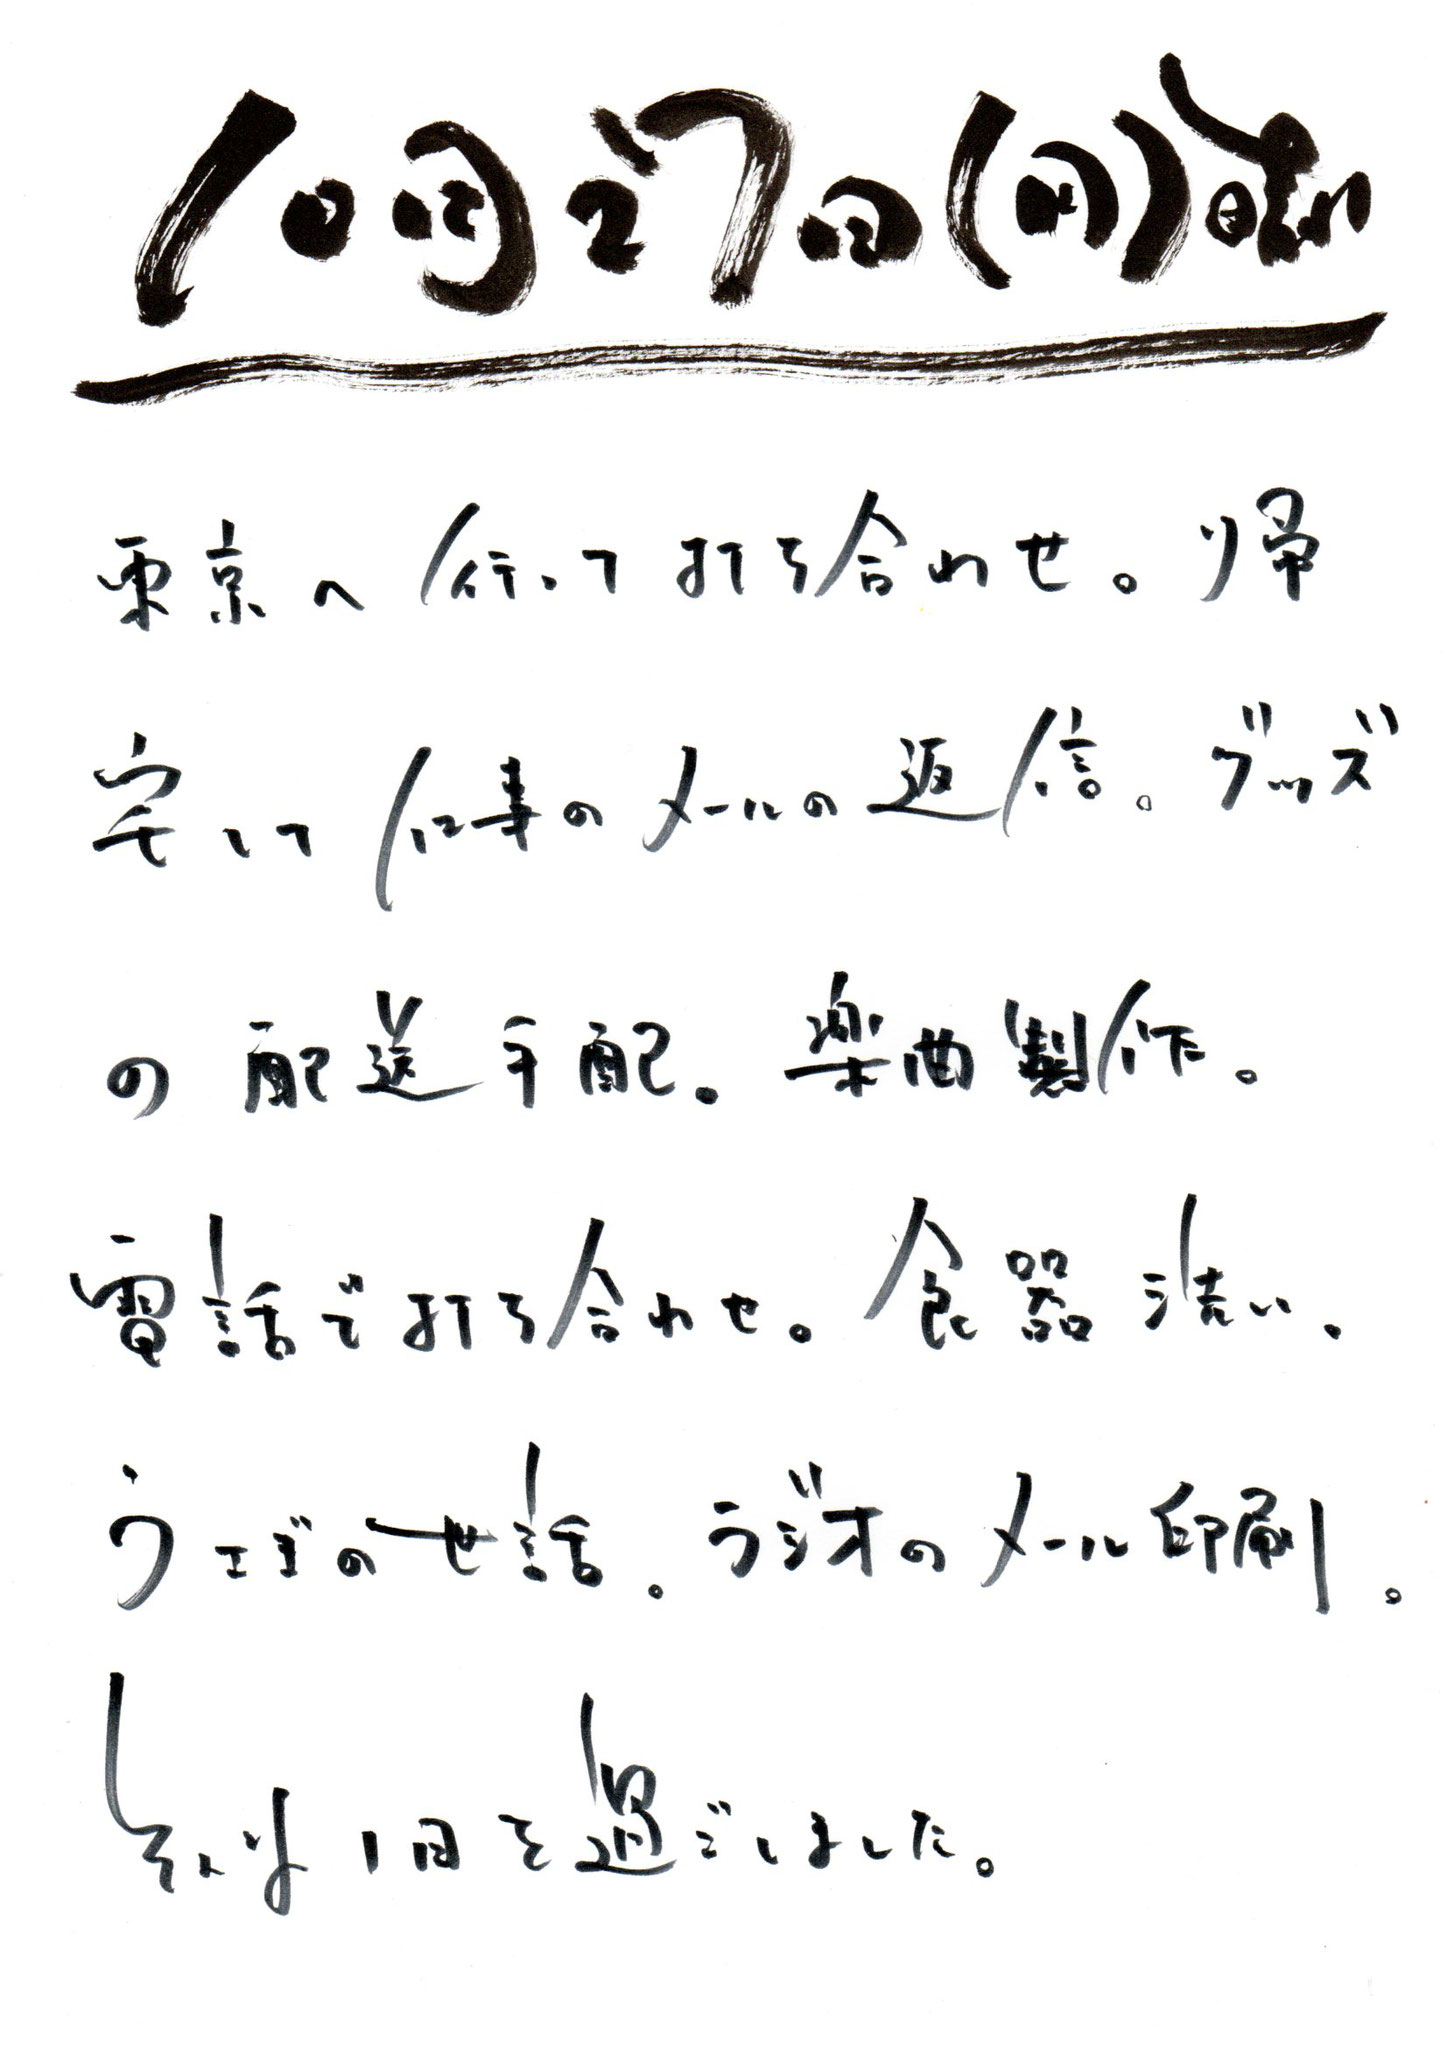 10月27日(月)晴れ
東京へ行って打ち合わせ。帰
宅して仕事のメールの返信。グッズ
の配送手配。楽曲製作。
電話で打ち合わせ。食器洗い。
ウサギの世話。ラジオのメール印刷。
そんな1日を過ごしました。